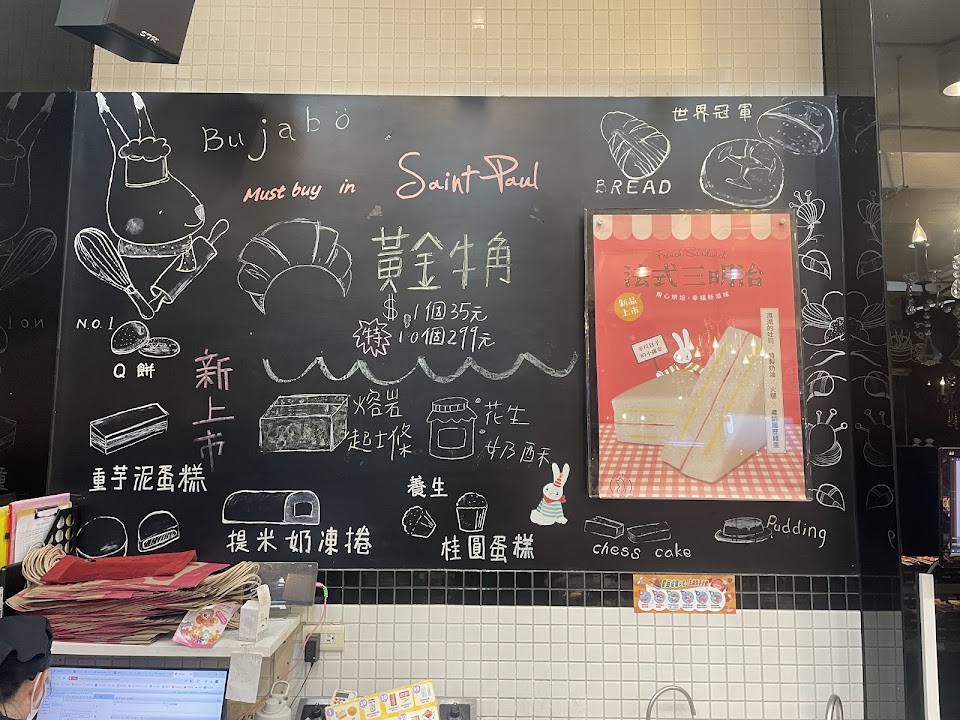 STR
Bujabo
Must buy in Saint-Paul
世界冠軍
BREAD
黃金牛角
$ 1個35元
特 10個299元
N.O.1
Q餅
新上市
重芋泥蛋糕
熔岩
起士條
花生
奶酥
提米奶凍捲
養生
桂圓蛋糕
chess cake
Pudding
French Sandwich
法式三明治
用心烘焙・幸福新滋味
新品
上市